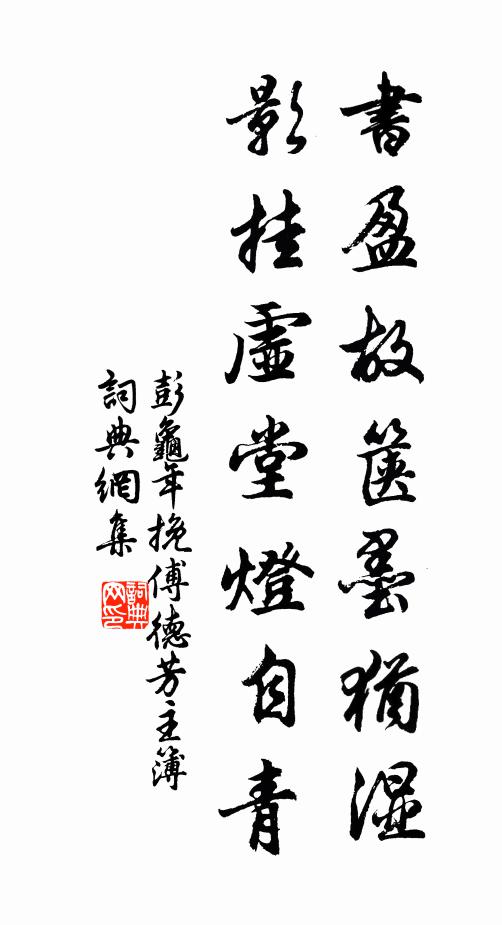 書盈故篋墨猶濕
影挂虛堂燈自青
彭龜年挽傅德芳主簿
詞典網集
詞典网印